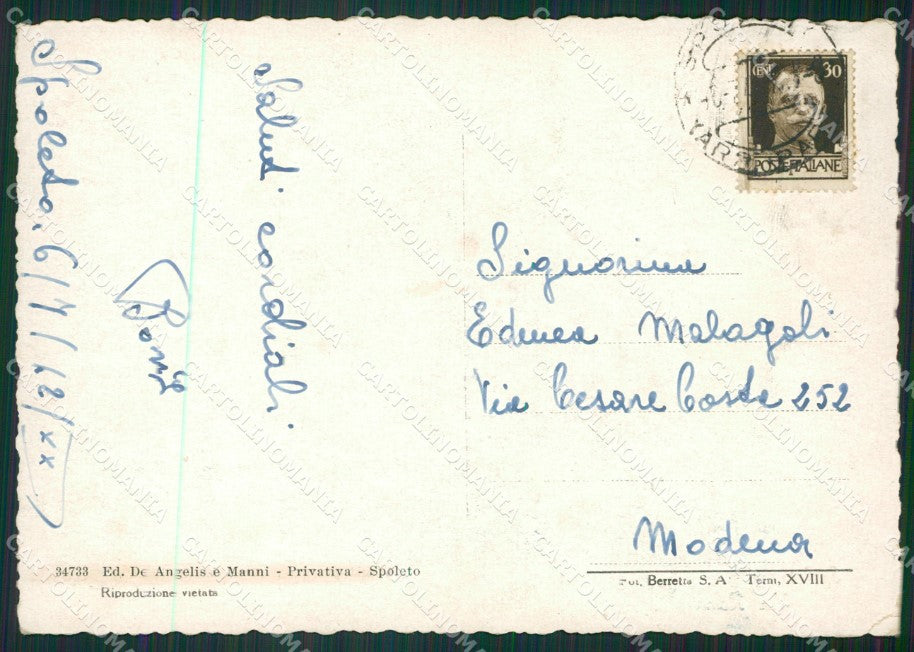 Spoleto, 6/7/42/XX
Saluti cordiali.
CEN. 30
POSTE ITALIANE
Signorina
Edmea Malagoli
Via Cesare Costa 252
Modena
34733 Ed. De Angelis e Manni - Privativa - Spoleto
Riproduzione vietata
Berretta S. A. Terni, XVIII
CARTOLINOMANIA